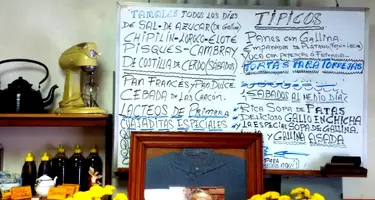 TAMALES TODOS LOS DÍAS
DE SAL - DE AZUCAR (DE GALLINA
CHIPILÍN - JOROCO - ELOTE
PISQUES - CAMBRAY
DE COSTILLA DE CERDO (SABADOS)
PAN FRANCÉS Y PAN DULCE
CEBADA DE LAS CARCON.
LACTEOS DE PRIMERA
CUAJADITAS ESPECIALES
TÍPICOS
PANES CON GALLINA.
EMPANADAS DE PLATANO
YUCA CON PEPESCA Ó FRITADA.
TORTAS PARA TORREJAS
SABADOS AL MEDIO DÍA
RICA SOPA DE PATAS
DELICIOSO GALLO EN CHICHA
LA ESPECIAL SOPA DE GALLINA.
Y GALLINA ASADA